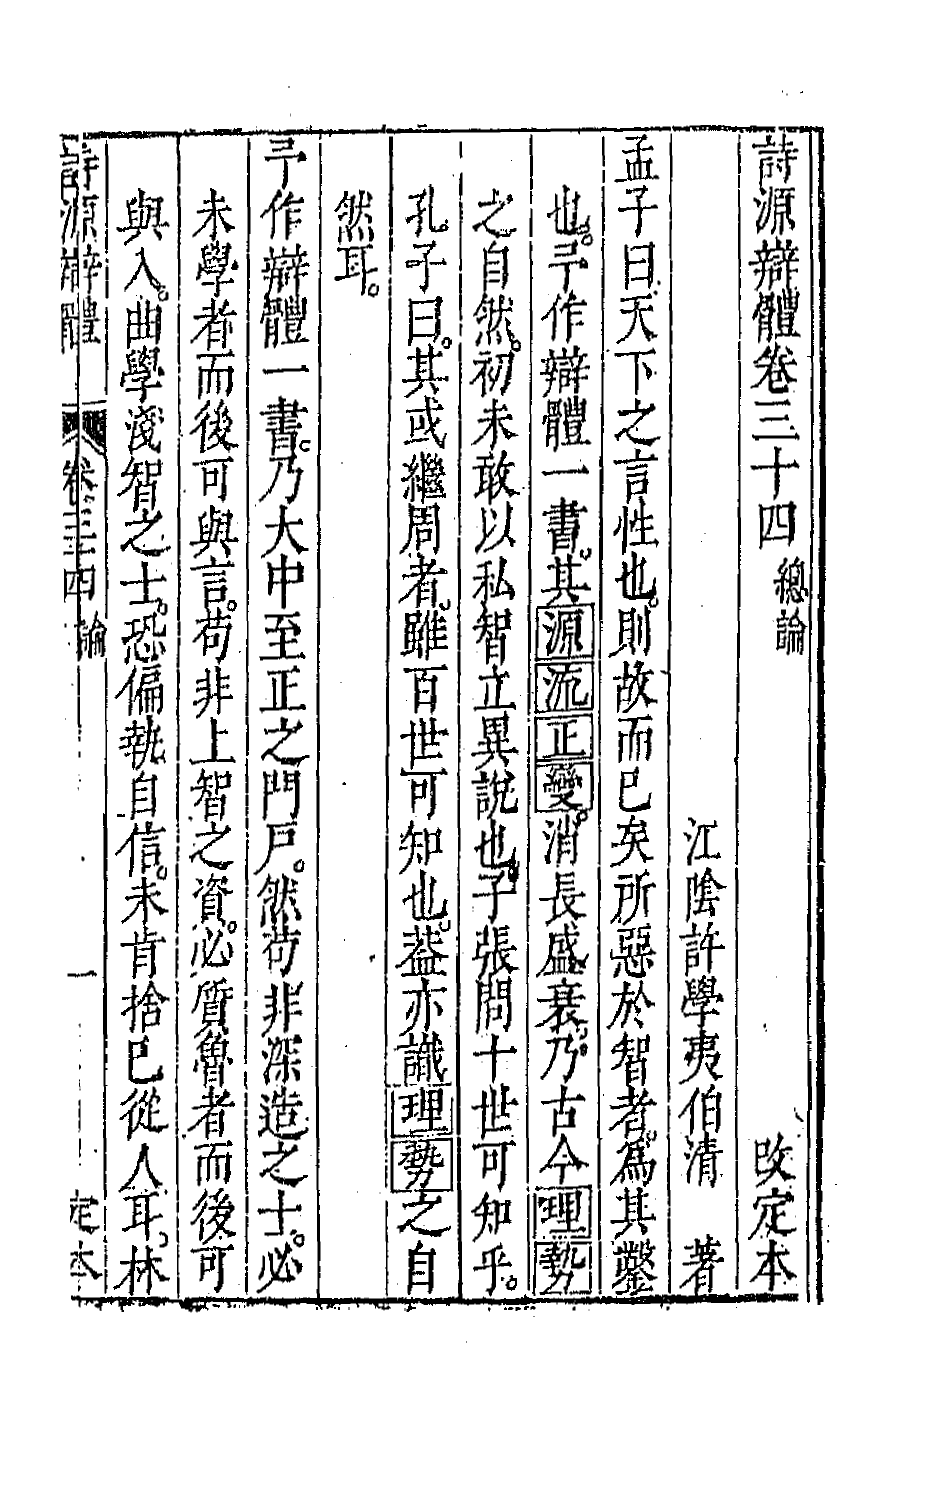 詩源辯體卷三十四 總論 改定本
江陰許學夷伯清 著
孟子曰天下之言性也。則故而已矣所惡於智者。爲其鑿
也。予作辯體一書。其源流正變。消長盛衰。乃古今理勢
之自然。初未敢以私智立異說也。子張問十世可知乎。
孔子曰。其或繼周者。雖百世可知也。葢亦識理勢之自
然耳。
予作辯體一書。乃大中至正之門戸。然苟非深造之士。必
未學者而後可與言。苟非上智之資。必質魯者而後可
與入。曲學淺智之士。恐偏執自信。未肯捨已從人耳。林
詩源辯體 卷三十四 論 一 定本